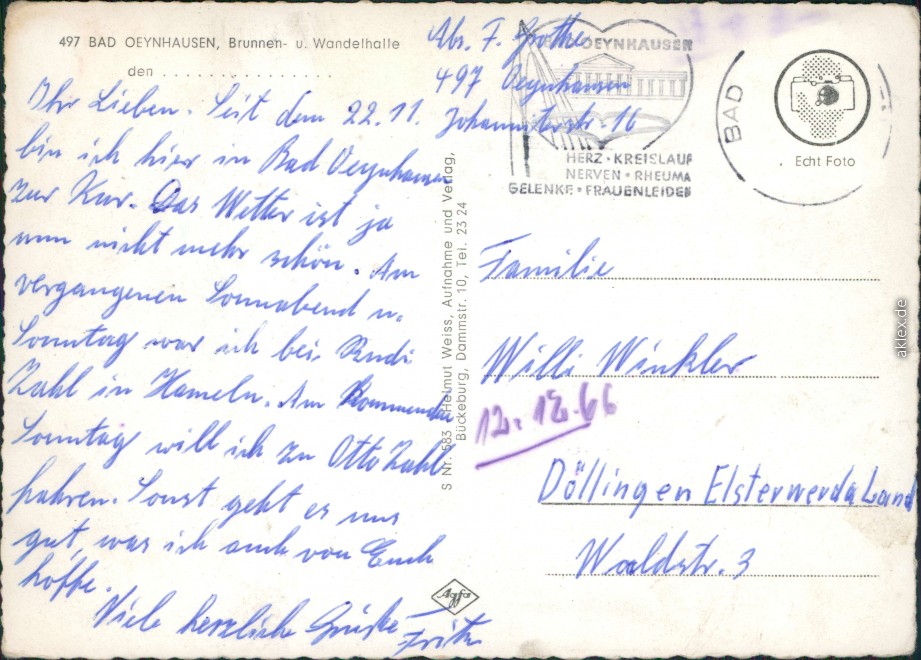 497 BAD OEYNHAUSEN, Brunnen- u. Wandelhalle
den . . . . . . . . . . . . . . . .
Ihr Lieben. Seit dem 22.11.
bin ich hier in Bad Oeynhausen
zur Kur. Das Wetter ist ja
nun nicht mehr schön. Am
vergangenen Sonnabend u.
Sonntag war ich bei Rudi
Zahl in Hameln. Am kommenden
Sonntag will ich zu Otto Zahl
fahren. Sonst geht es uns
gut, was ich auch von Euch
hoffe.
Viele herzliche Grüße
Fritz
Abs. F. Grothe
497 Oeynhausen
Johanniterstr. 16
OEYNHAUSEN
HERZ · KREISLAUF
NERVEN · RHEUMA
GELENKE · FRAUENLEIDEN
BAD
Echt Foto
S Nr. 683 Helmut Weiss, Aufnahme und Verlag,
Bückeburg, Dammstr. 10, Tel. 23 24
Familie
Willi Winkler
12.12.66
Döllingen Elsterwerda Land
Waldstr. 3
Agfa
aklex.de